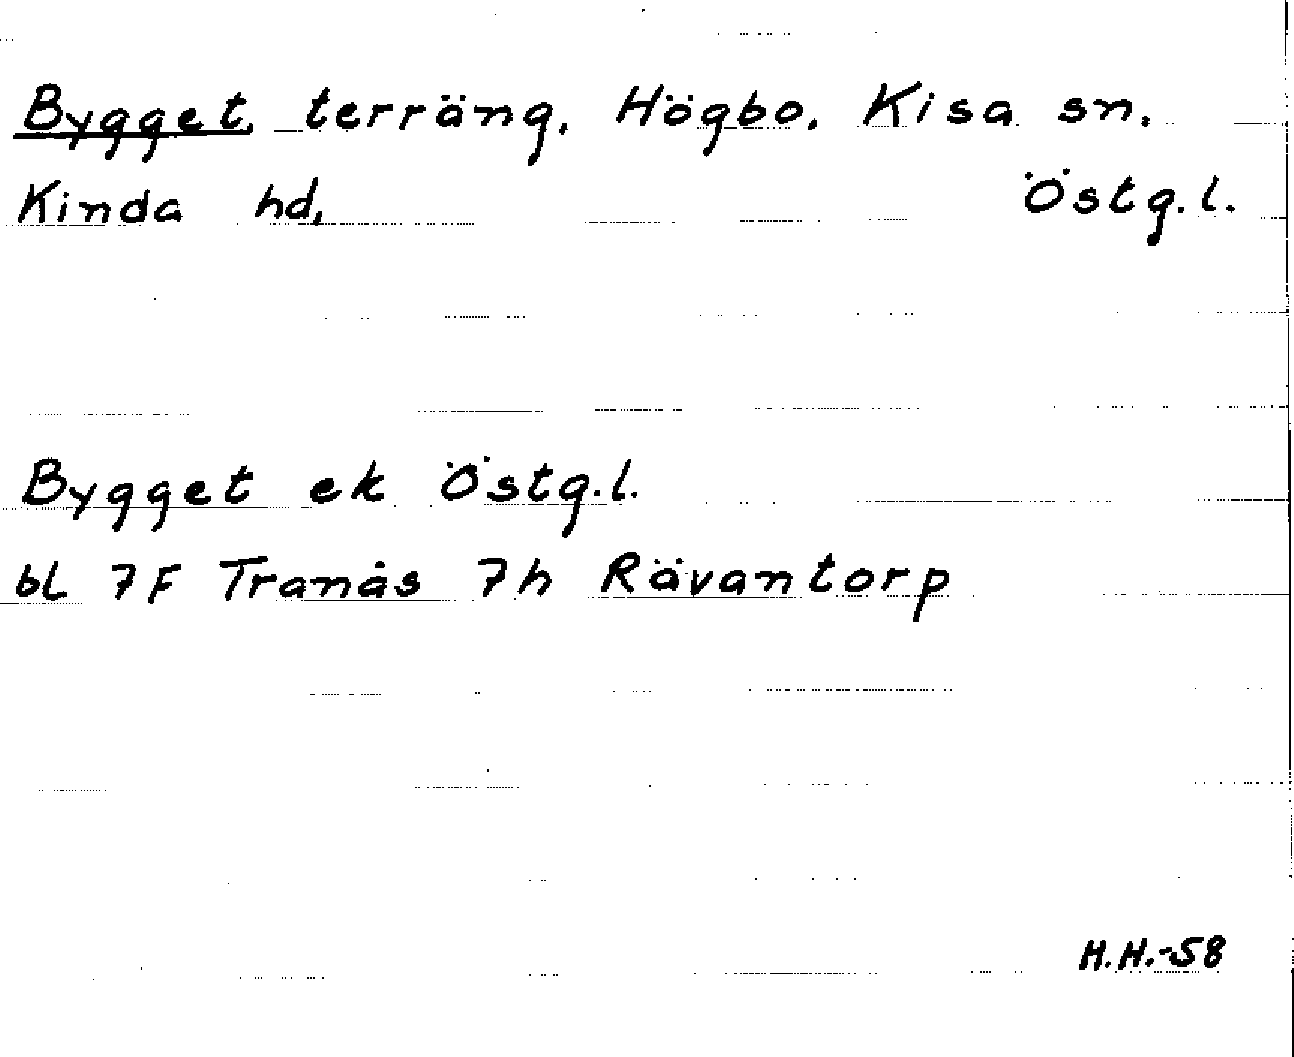 Bygget, terräng, Högbo, Kisa sn,
Kinda hd, Östg.l.
Bygget ek Östg.l.
bl 7F Tranås 7h Rävantorp
H.H.-58